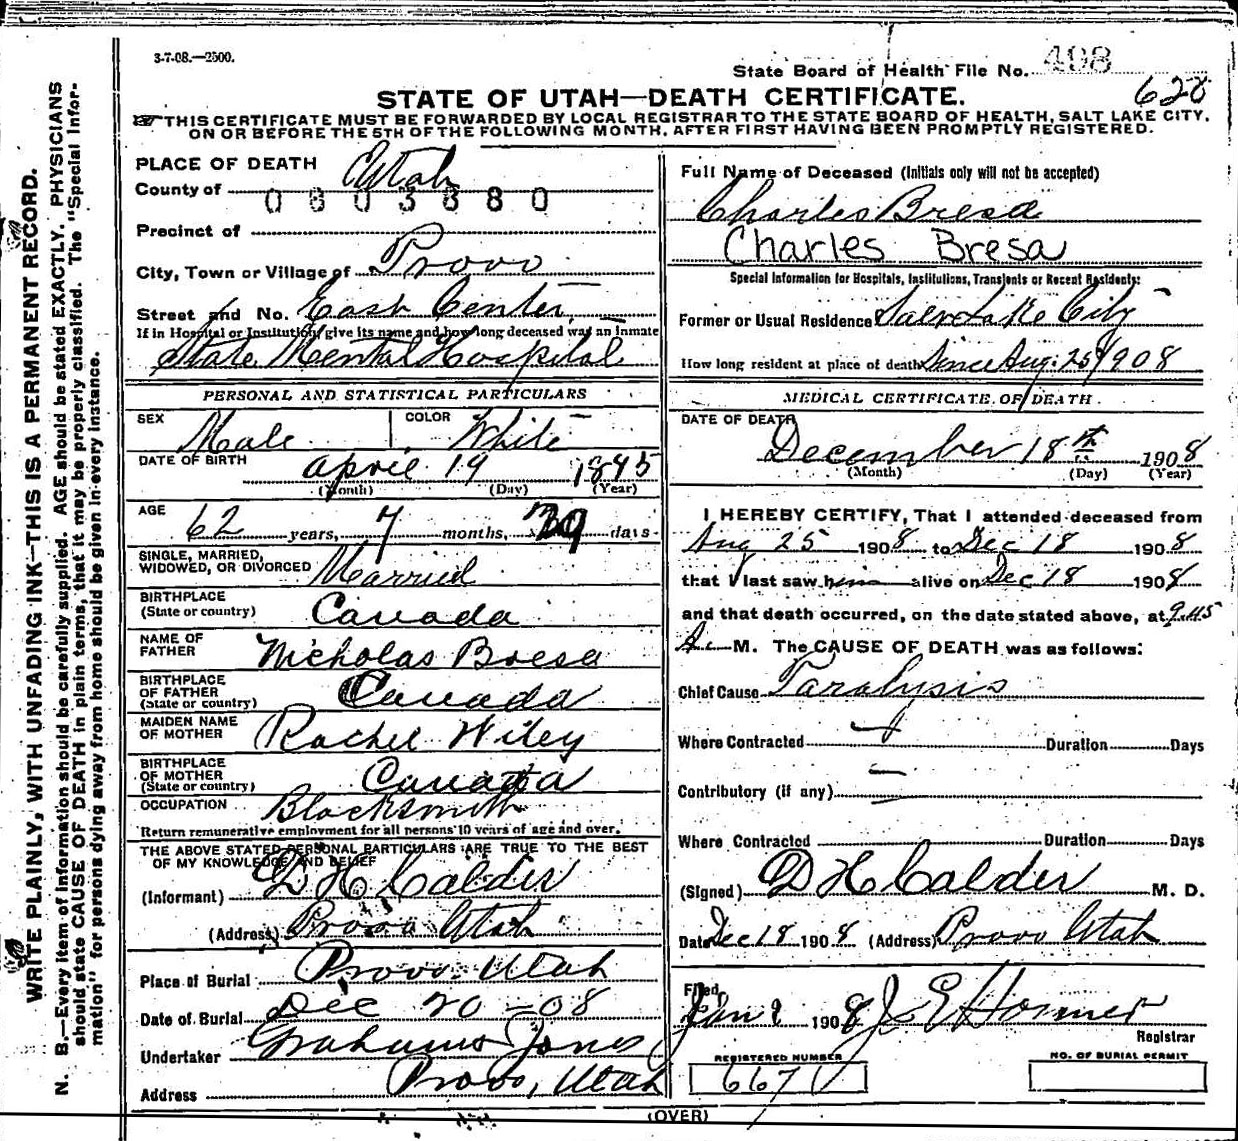 3-7-08.—2500.
State Board of Health File No. 408
628
STATE OF UTAH—DEATH CERTIFICATE.
THIS CERTIFICATE MUST BE FORWARDED BY LOCAL REGISTRAR TO THE STATE BOARD OF HEALTH, SALT LAKE CITY,
ON OR BEFORE THE 5TH OF THE FOLLOWING MONTH, AFTER FIRST HAVING BEEN PROMPTLY REGISTERED.
WRITE PLAINLY, WITH UNFADING INK—THIS IS A PERMANENT RECORD.
N. B.—Every item of information should be carefully supplied. AGE should be stated EXACTLY. PHYSICIANS
should state CAUSE OF DEATH in plain terms, that it may be properly classified. The "Special Infor-
mation" for persons dying away from home should be given in every instance.
PLACE OF DEATH
County of Utah
0803880
Precinct of
City, Town or Village of Provo
Street and No. East Center
If in Hospital or Institution, give its name and how long deceased was an inmate
State Mental Hospital
PERSONAL AND STATISTICAL PARTICULARS
SEX Male COLOR White
DATE OF BIRTH April 19 1845
(Month) (Day) (Year)
AGE 62 years, 7 months, 29 days
SINGLE, MARRIED,
WIDOWED, OR DIVORCED Married
BIRTHPLACE
(State or country) Canada
NAME OF
FATHER Nicholas Bresa
BIRTHPLACE
OF FATHER
(State or country) Canada
MAIDEN NAME
OF MOTHER Rachel Wiley
BIRTHPLACE
OF MOTHER
(State or country) Canada
OCCUPATION Blacksmith
Return remunerative employment for all persons 10 years of age and over.
THE ABOVE STATED PERSONAL PARTICULARS ARE TRUE TO THE BEST
OF MY KNOWLEDGE AND BELIEF
(Informant) D H Calder
(Address) Provo Utah
Place of Burial Provo Utah
Date of Burial Dec 20-08
Undertaker Grahams Jones
Address Provo, Utah
Full Name of Deceased (Initials only will not be accepted)
Charles Bresa
Charles Bresa
Special Information for Hospitals, Institutions, Transients or Recent Residents:
Former or Usual Residence Salt Lake City
How long resident at place of death Since Aug. 25/1908
MEDICAL CERTIFICATE OF DEATH
DATE OF DEATH
December 18th 1908
(Month) (Day) (Year)
I HEREBY CERTIFY, That I attended deceased from
Aug 25 1908 to Dec 18 1908
that I last saw him alive on Dec 18 1908
and that death occurred, on the date stated above, at 9.45
A. M. The CAUSE OF DEATH was as follows:
Chief Cause Paralysis
Where Contracted Duration Days
Contributory (if any)
Where Contracted Duration Days
(Signed) D H Calder M. D.
Date Dec 18 1908 (Address) Provo Utah
Filed,
Jan 1908 J E Homer
Registrar
REGISTERED NUMBER
667
NO. OF BURIAL PERMIT
(OVER)